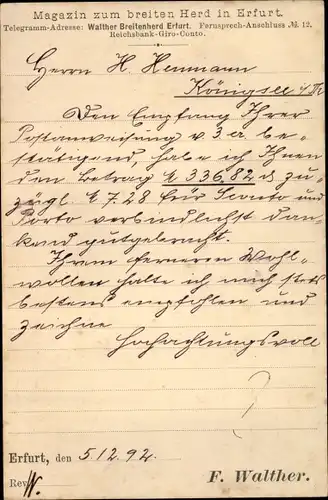 Magazin zum breiten Herd in Erfurt.
Telegramm-Adresse: Walther Breitenherd Erfurt. Fernsprech-Anschluss № 12.
Reichsbank-Giro-Conto.
Herrn H. Heumann
Königsee i/Th
Den Empfang Ihrer
Postanweisung v. 3 cr be-
stätigend, habe ich Ihnen
den Betrag M 336.82 d zu-
zügl. M 7.28 für Sconto und
Porto verbindlichst dan-
kend gutgebracht.
Ihrem ferneren Wohl-
wollen halte ich mich stets
bestens empfohlen und
zeichne
Hochachtungsvoll
Erfurt, den 5/12.92.
Rev.
F. Walther.